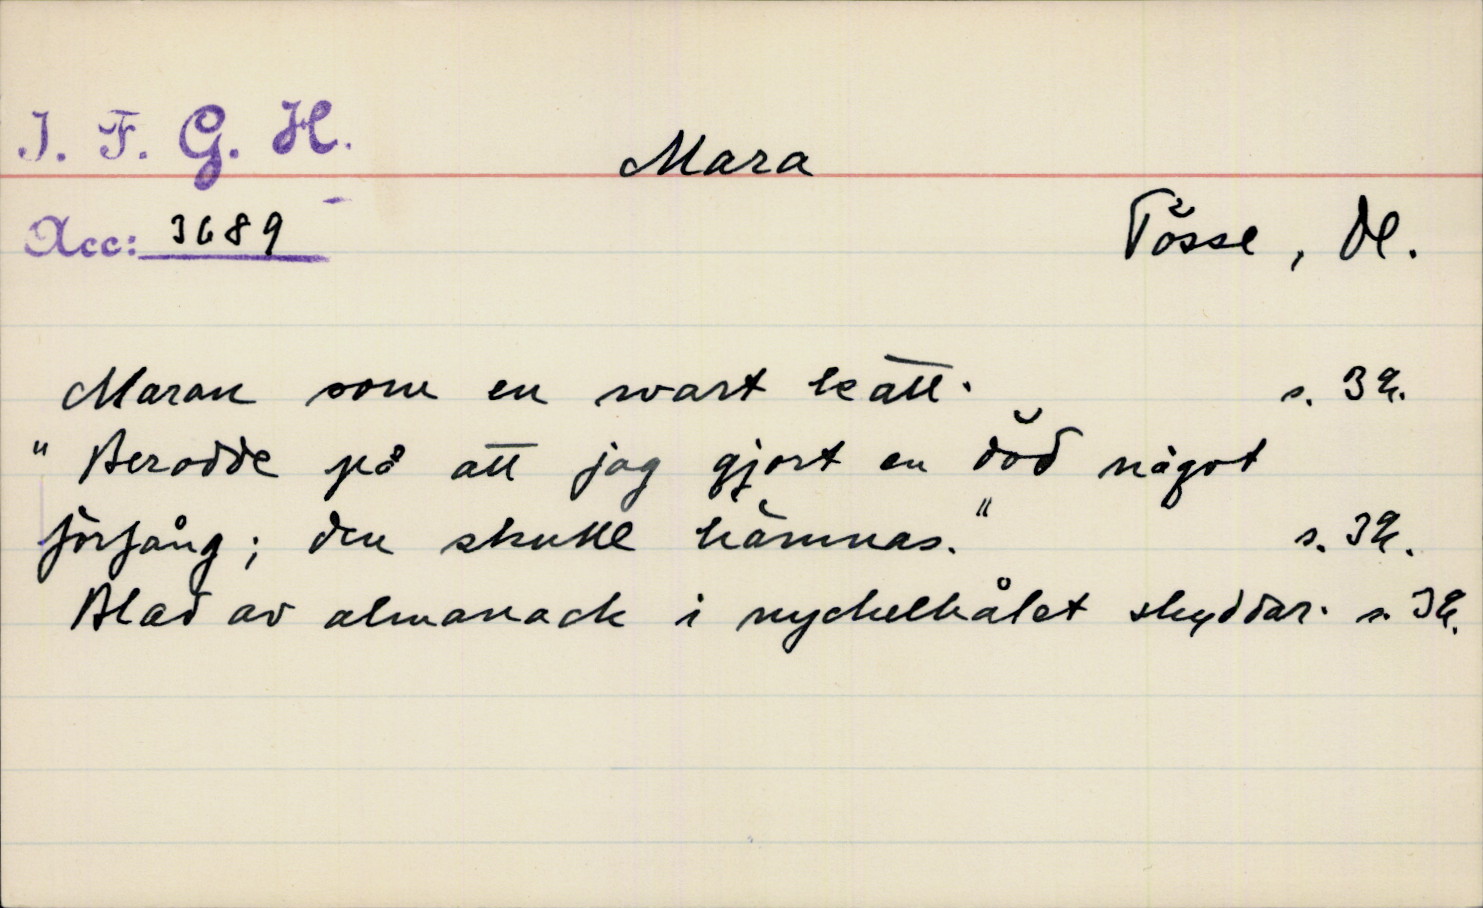 I. F. G. H.
Mara
Acc: 3689
Tösse, Dl.
Maran som en svart katt. s. 32.
"Berodde på att jag gjort en död något
förfång; den skulle hämnas." s. 32.
Blad av almanack i nyckelhålet skyddar. s. 32.